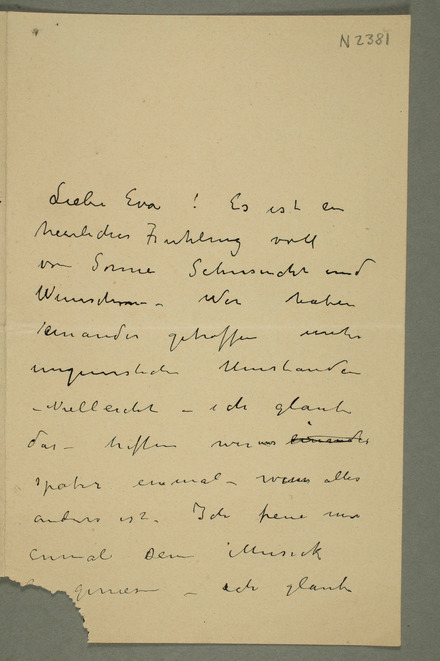 N 2381
Liebe Eva! Es ist ein
herrliches Fruhling voll
von Sonne Sehnsucht und
Wunschen - Wir haben
einander getroffen unter
ungunstichen Umstanden
- Vielleicht - ich glaube
das - treffen wir uns einander
spater einmal - wenn alles
anders ist. Ich freue mir
einmal Dein Musick
geniesen - ich glaube